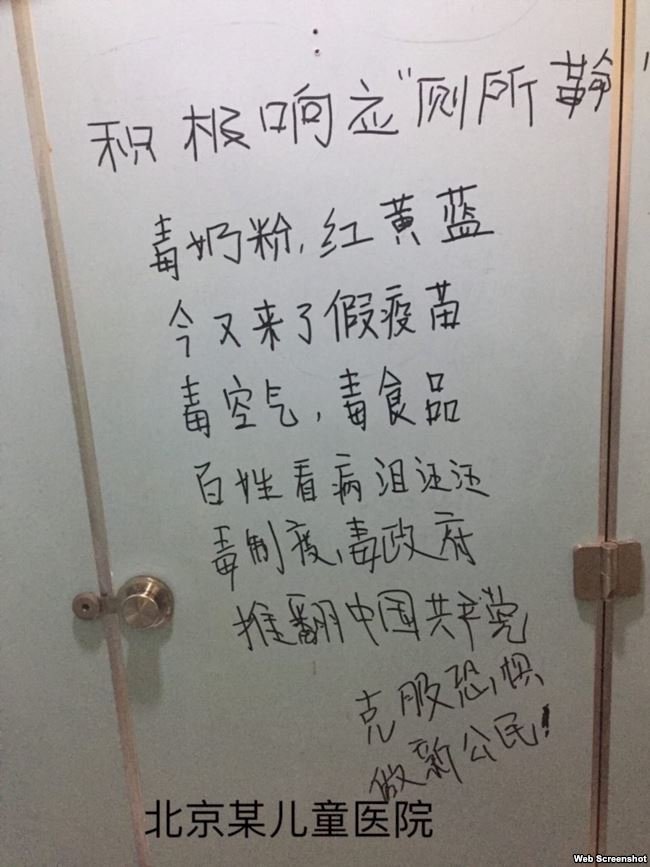 积极响应"厕所革命"
毒奶粉,红黄蓝
今又来了假疫苗
毒空气,毒食品
百姓看病泪汪汪
毒制度,毒政府
推翻中国共产党
克服恐惧
做新公民!
北京某儿童医院
Web Screenshot